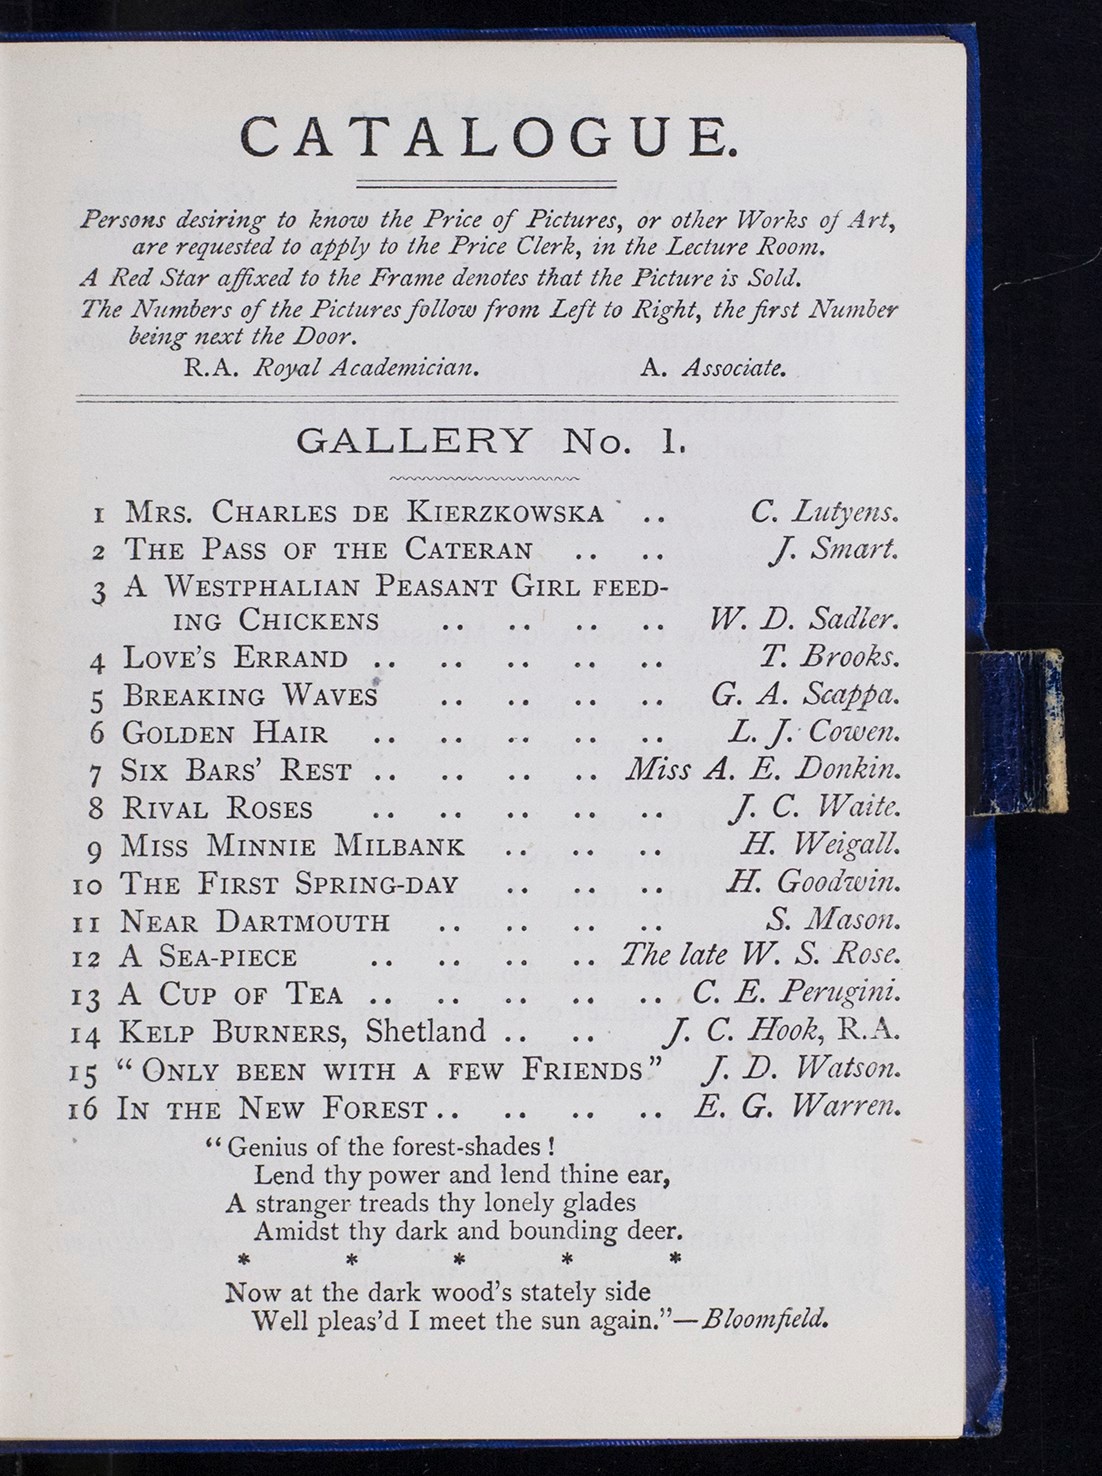 CATALOGUE.
Persons desiring to know the Price of Pictures, or other Works of Art,
are requested to apply to the Price Clerk, in the Lecture Room.
A Red Star affixed to the Frame denotes that the Picture is Sold.
The Numbers of the Pictures follow from Left to Right, the first Number
being next the Door.
R.A. Royal Academician. A. Associate.
GALLERY No. 1.
1 MRS. CHARLES DE KIERZKOWSKA .. C. Lutyens.
2 THE PASS OF THE CATERAN .. .. J. Smart.
3 A WESTPHALIAN PEASANT GIRL FEED-
ING CHICKENS .. .. .. .. W. D. Sadler.
4 LOVE'S ERRAND .. .. .. .. .. T. Brooks.
5 BREAKING WAVES .. .. .. .. G. A. Scappa.
6 GOLDEN HAIR .. .. .. .. .. L. J. Cowen.
7 SIX BARS' REST .. .. .. .. Miss A. E. Donkin.
8 RIVAL ROSES .. .. .. .. .. J. C. Waite.
9 MISS MINNIE MILBANK .. .. .. H. Weigall.
10 THE FIRST SPRING-DAY .. .. .. H. Goodwin.
11 NEAR DARTMOUTH .. .. .. .. S. Mason.
12 A SEA-PIECE .. .. .. .. The late W. S. Rose.
13 A CUP OF TEA .. .. .. .. .. C. E. Perugini.
14 KELP BURNERS, Shetland .. .. J. C. Hook, R.A.
15 "ONLY BEEN WITH A FEW FRIENDS" J. D. Watson.
16 IN THE NEW FOREST .. .. .. .. E. G. Warren.
"Genius of the forest-shades!
Lend thy power and lend thine ear,
A stranger treads thy lonely glades
Amidst thy dark and bounding deer.
* * * * *
Now at the dark wood's stately side
Well pleas'd I meet the sun again."—Bloomfield.